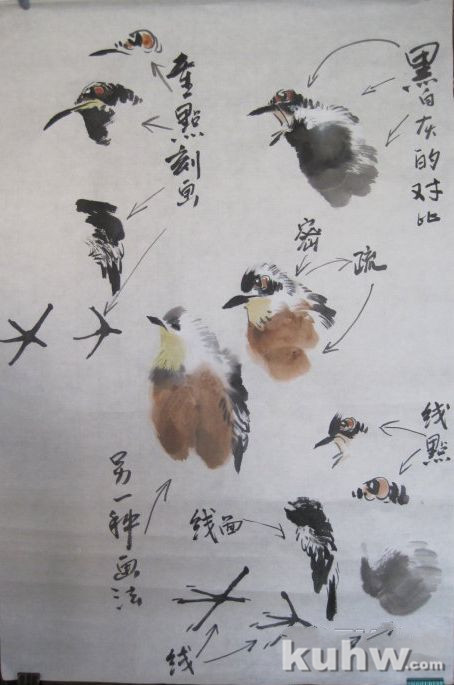 黑白灰的对比
重點刻画
密
疏
线點
另一种画法
线面
线
kuhw.com